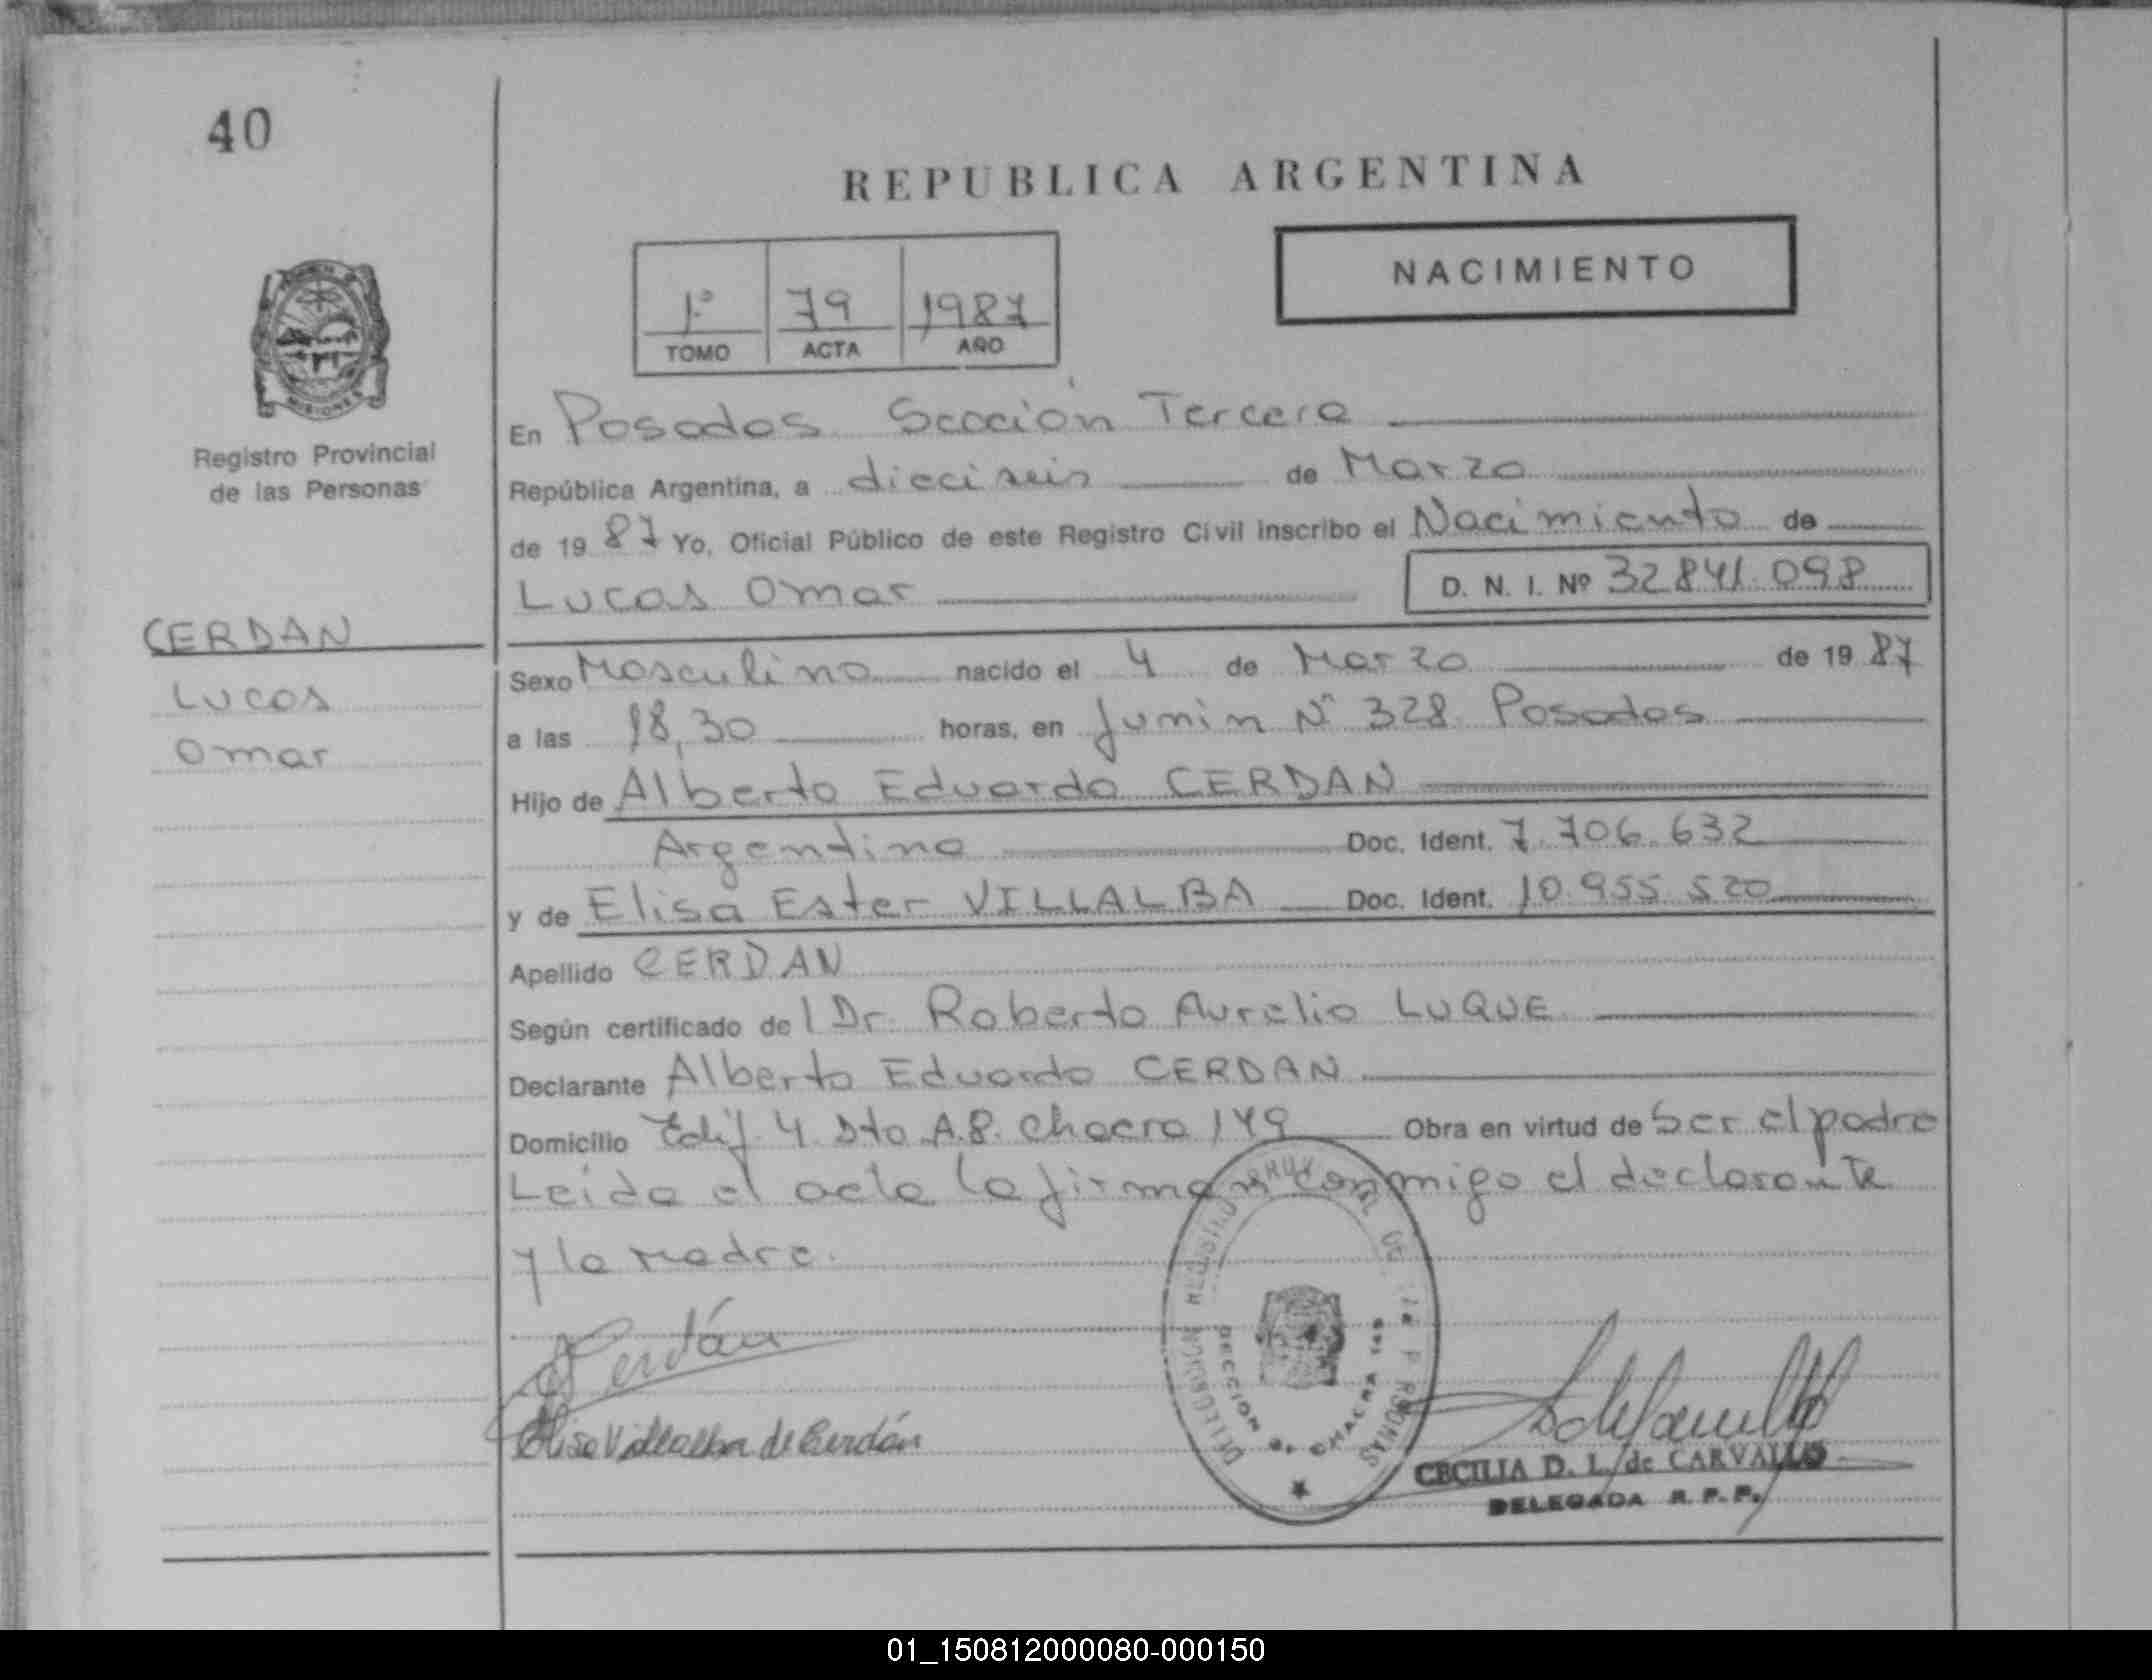 40
REPUBLICA ARGENTINA
NACIMIENTO
1º 79 1987
TOMO ACTA AÑO
MISIONES
Registro Provincial
de las Personas
CERDAN
Lucas
Omar
En Posadas Sección Tercera
República Argentina, a dieciseis de Marzo
de 1987 Yo, Oficial Público de este Registro Civil inscribo el Nacimiento de
Lucas Omar D. N. I. Nº 32841.098
Sexo Masculino nacido el 4 de Marzo de 1987
a las 18,30 horas, en Junin Nº 328 Posadas
Hijo de Alberto Eduardo CERDAN
Argentino Doc. Ident. 7.706.632
y de Elisa Ester VILLALBA Doc. Ident. 10.955.520
Apellido CERDAN
Según certificado del Dr. Roberto Aurelio LUQUE
Declarante Alberto Eduardo CERDAN
Domicilio Edif. 4 Dto A.8. Chacra 149 Obra en virtud de Ser el padre
Leida el acta la firman conmigo el declarante
y la Madre.
Cerdán
Elisa Villalba de Cerdán
CHACRA 149
CECILIA D. L. de CARVALLO
DELEGADA R. P. P.
01_150812000080-000150